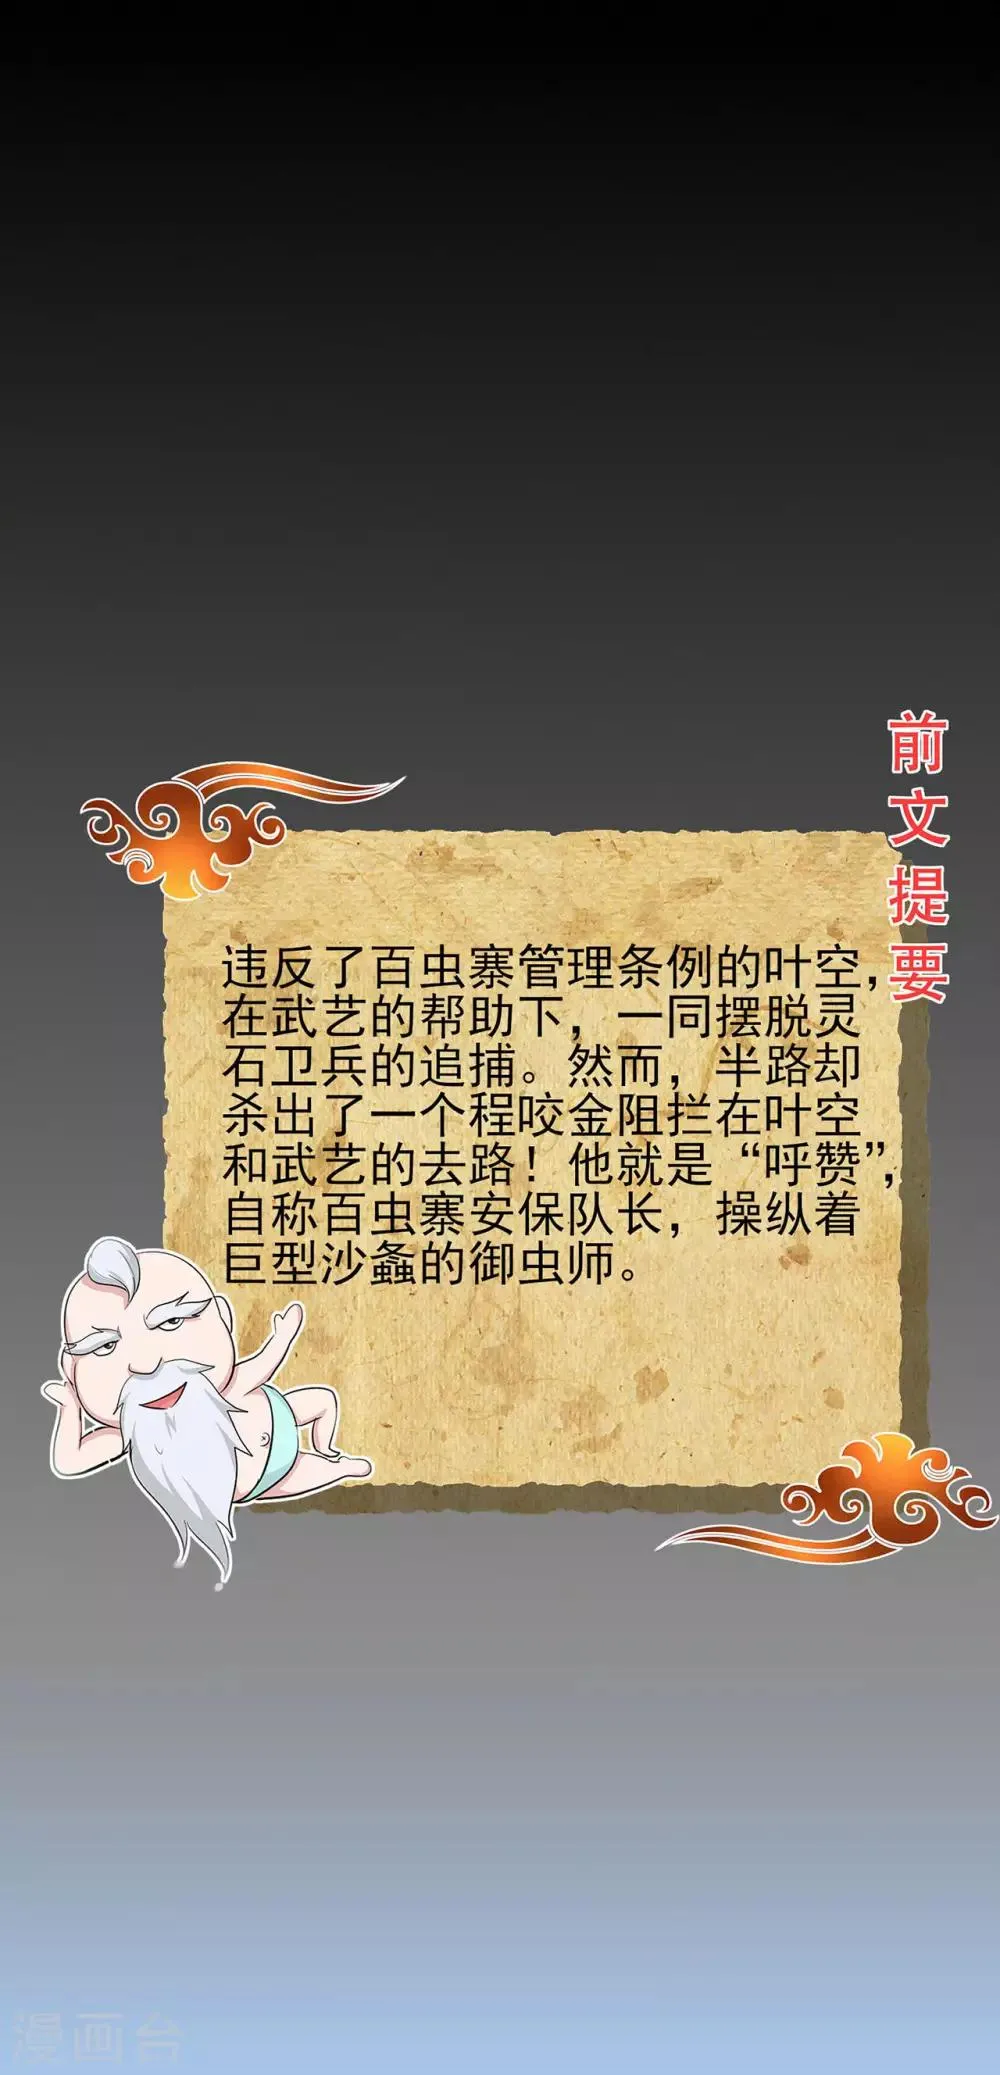 前文提要
违反了百虫寨管理条例的叶空，
在武艺的帮助下，一同摆脱灵
石卫兵的追捕。然而，半路却
杀出了一个程咬金阻拦在叶空
和武艺的去路！他就是“呼赞”，
自称百虫寨安保队长，操纵着
巨型沙螽的御虫师。
漫画台